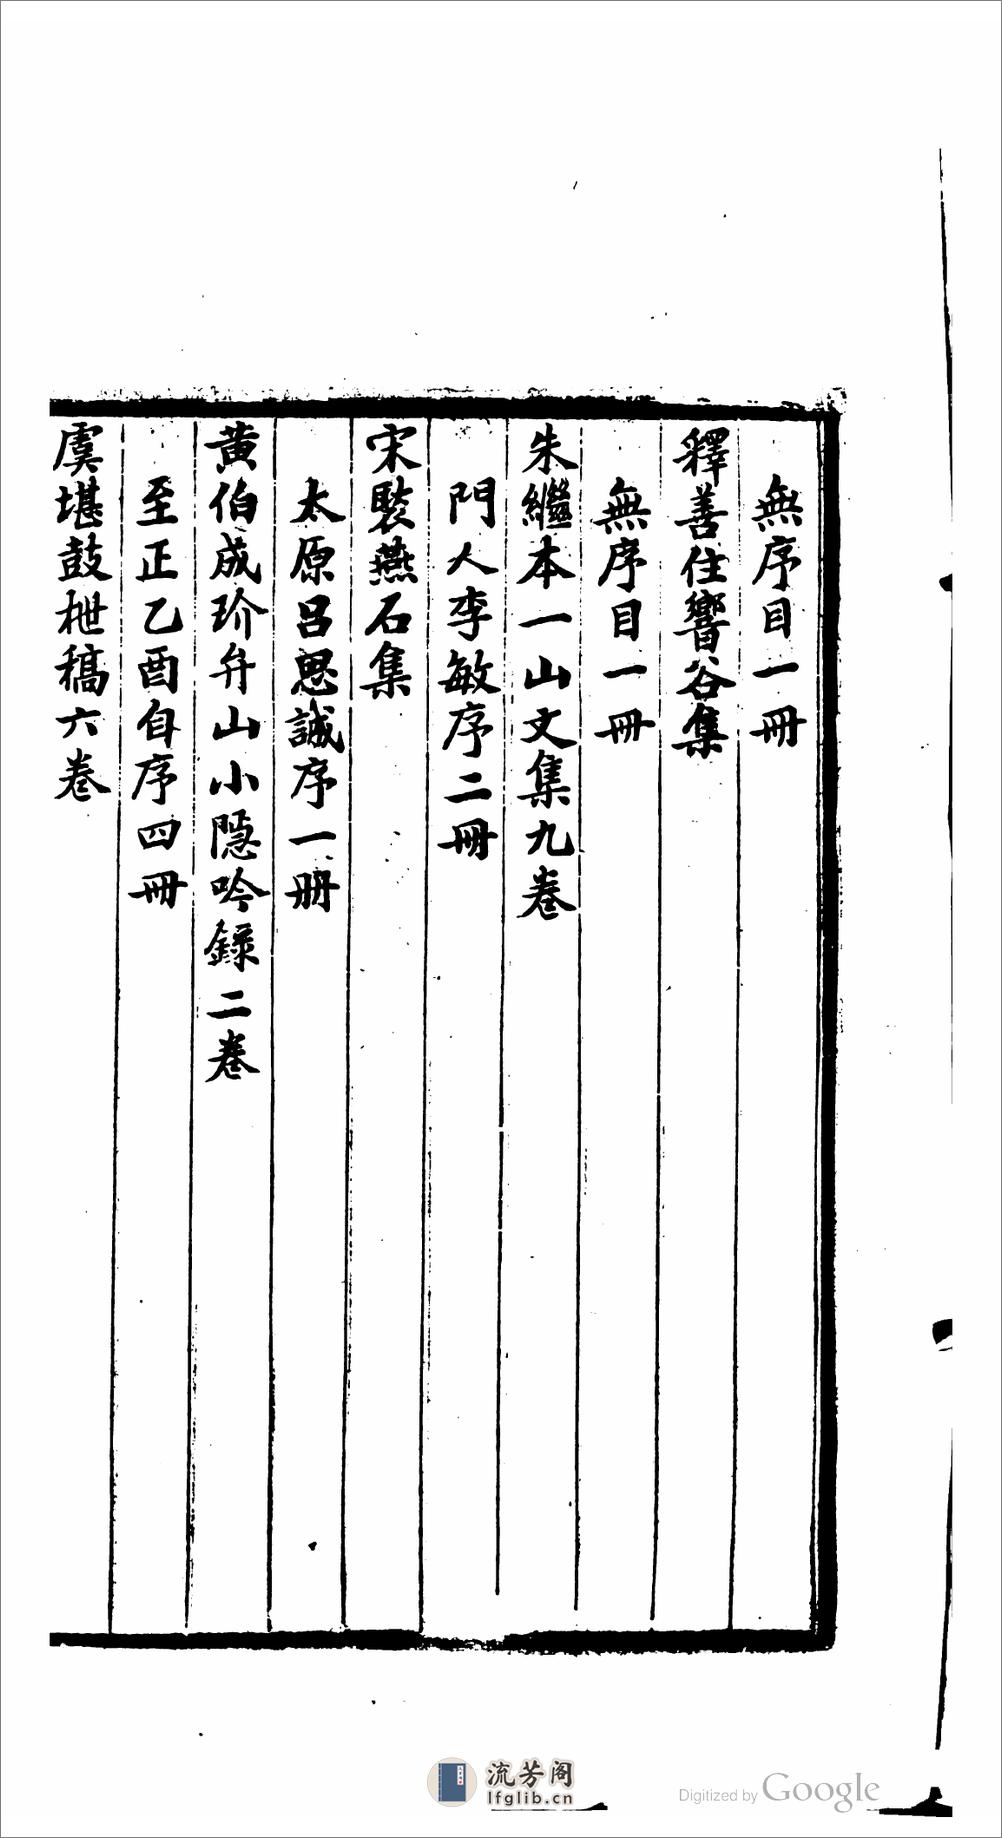 無序目一冊
釋善住響谷集
無序目一冊
朱繼本一山文集九卷
門人李敏序二冊
宋褧燕石集
太原吕思誠序一册
黄伯成玠弁山小隱吟錄二卷
至正乙酉自序四冊
虞堪鼓枻稿六卷
流芳阁
lfglib.cn
Digitized by Google